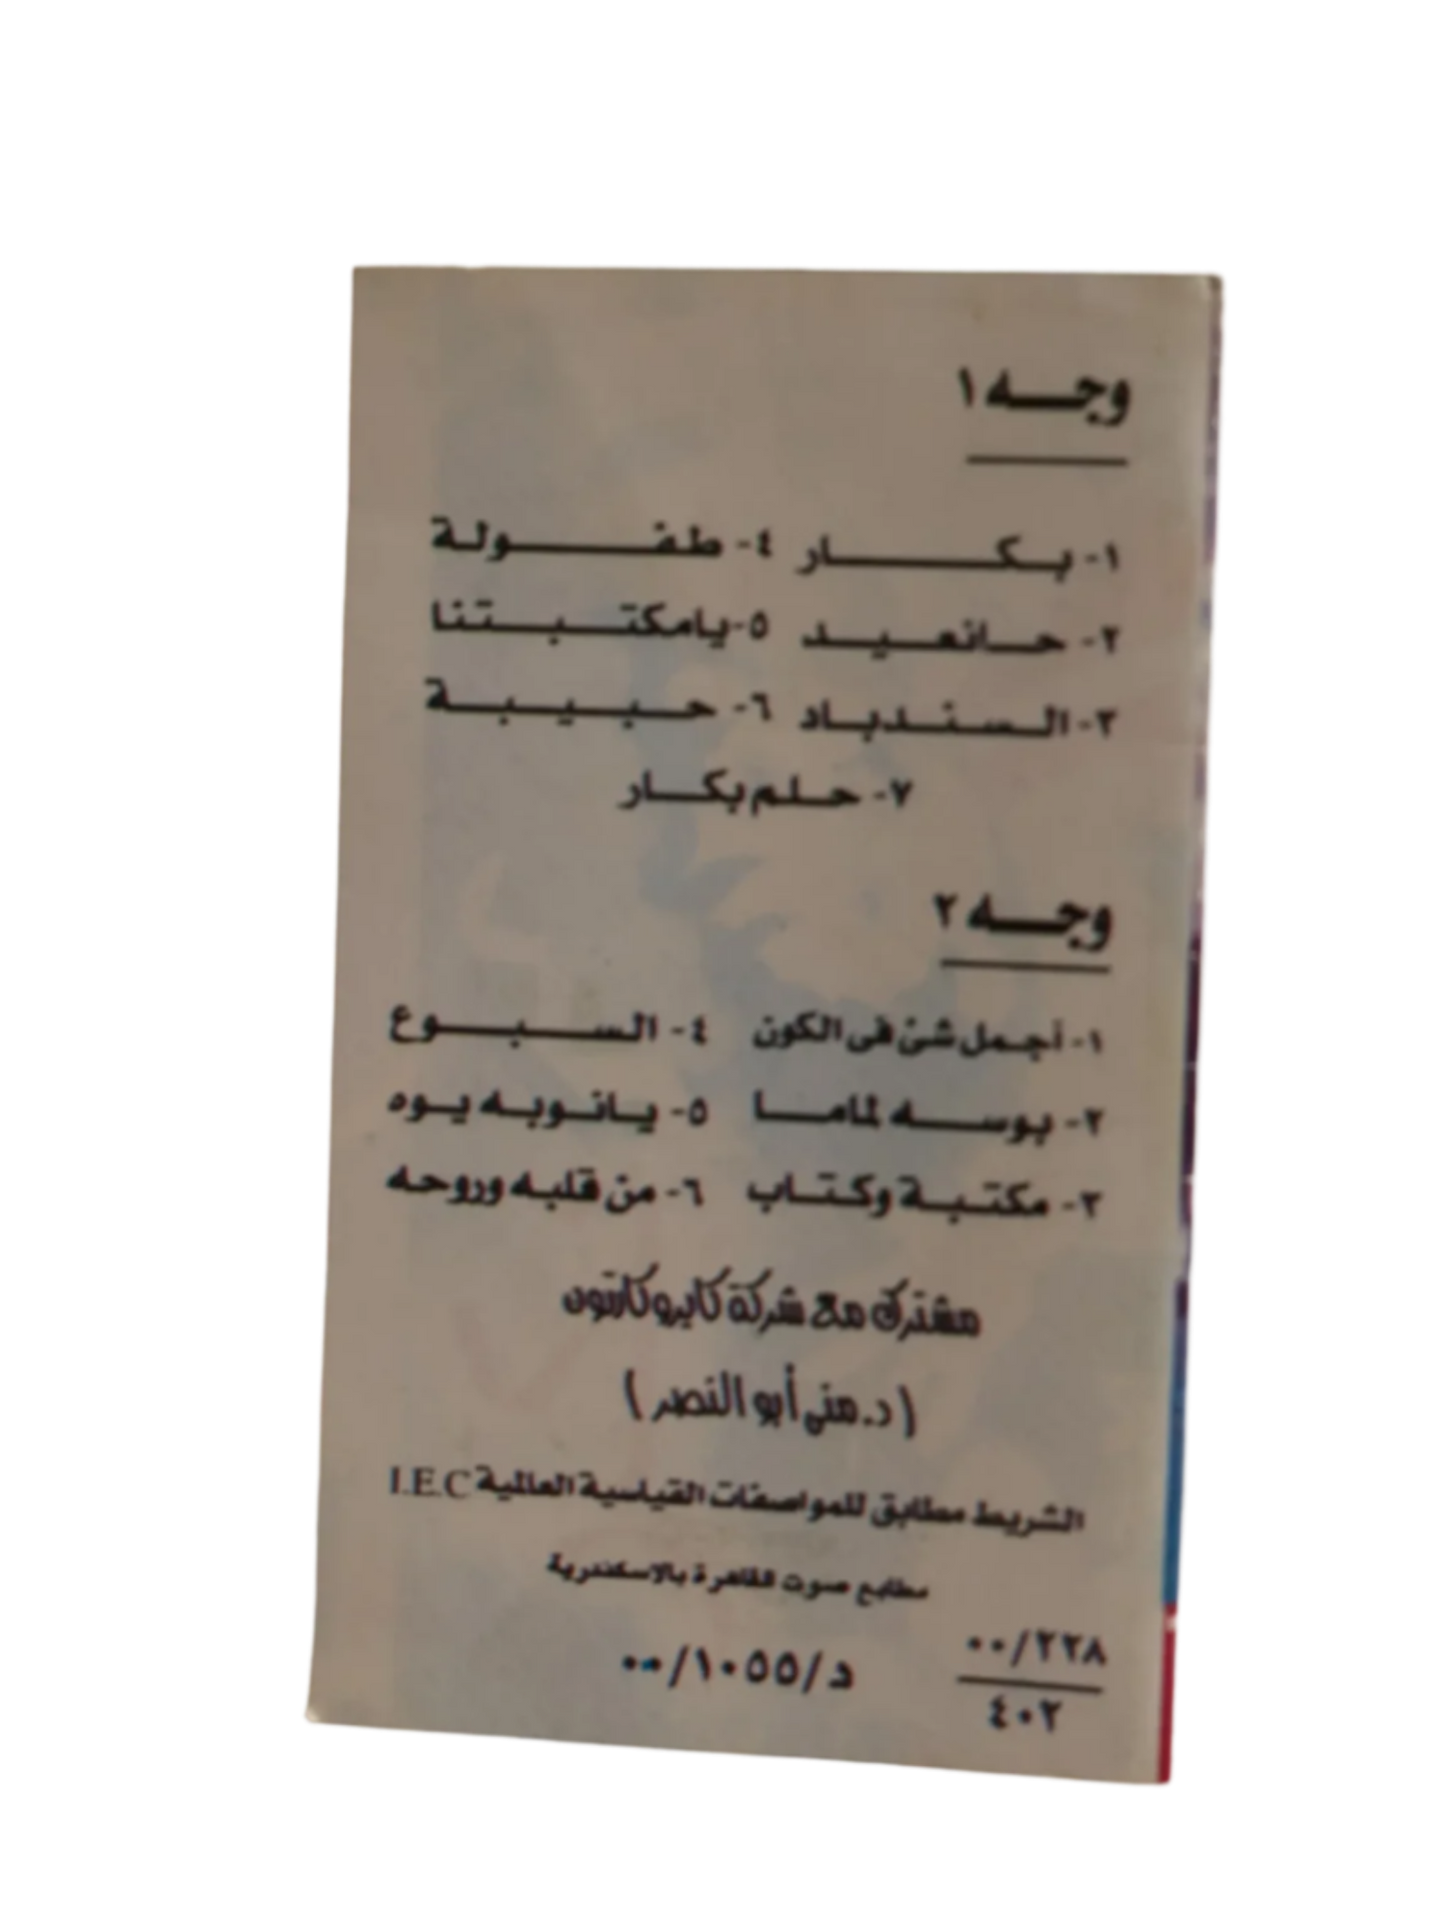 وجه ١
١- بكار ٤- طفولة
٢- حانعيد ٥- يامكتبتنا
٣- السندباد ٦- حبيبة
٧- حلم بكار
وجه ٢
١- أجمل شئ فى الكون ٤- السبوع
٢- بوسه لماما ٥- يانوبه يوه
٣- مكتبة وكتاب ٦- من قلبه وروحه
مشترك مع شركة كايرو كارتون
(د. منى أبو النصر)
الشريط مطابق للمواصفات القياسية العالمية I.E.C
مطابع صوت القاهرة بالاسكندرية
٠٠/٢٢٨
٤٠٢
د/١٠٥٥/٠٠